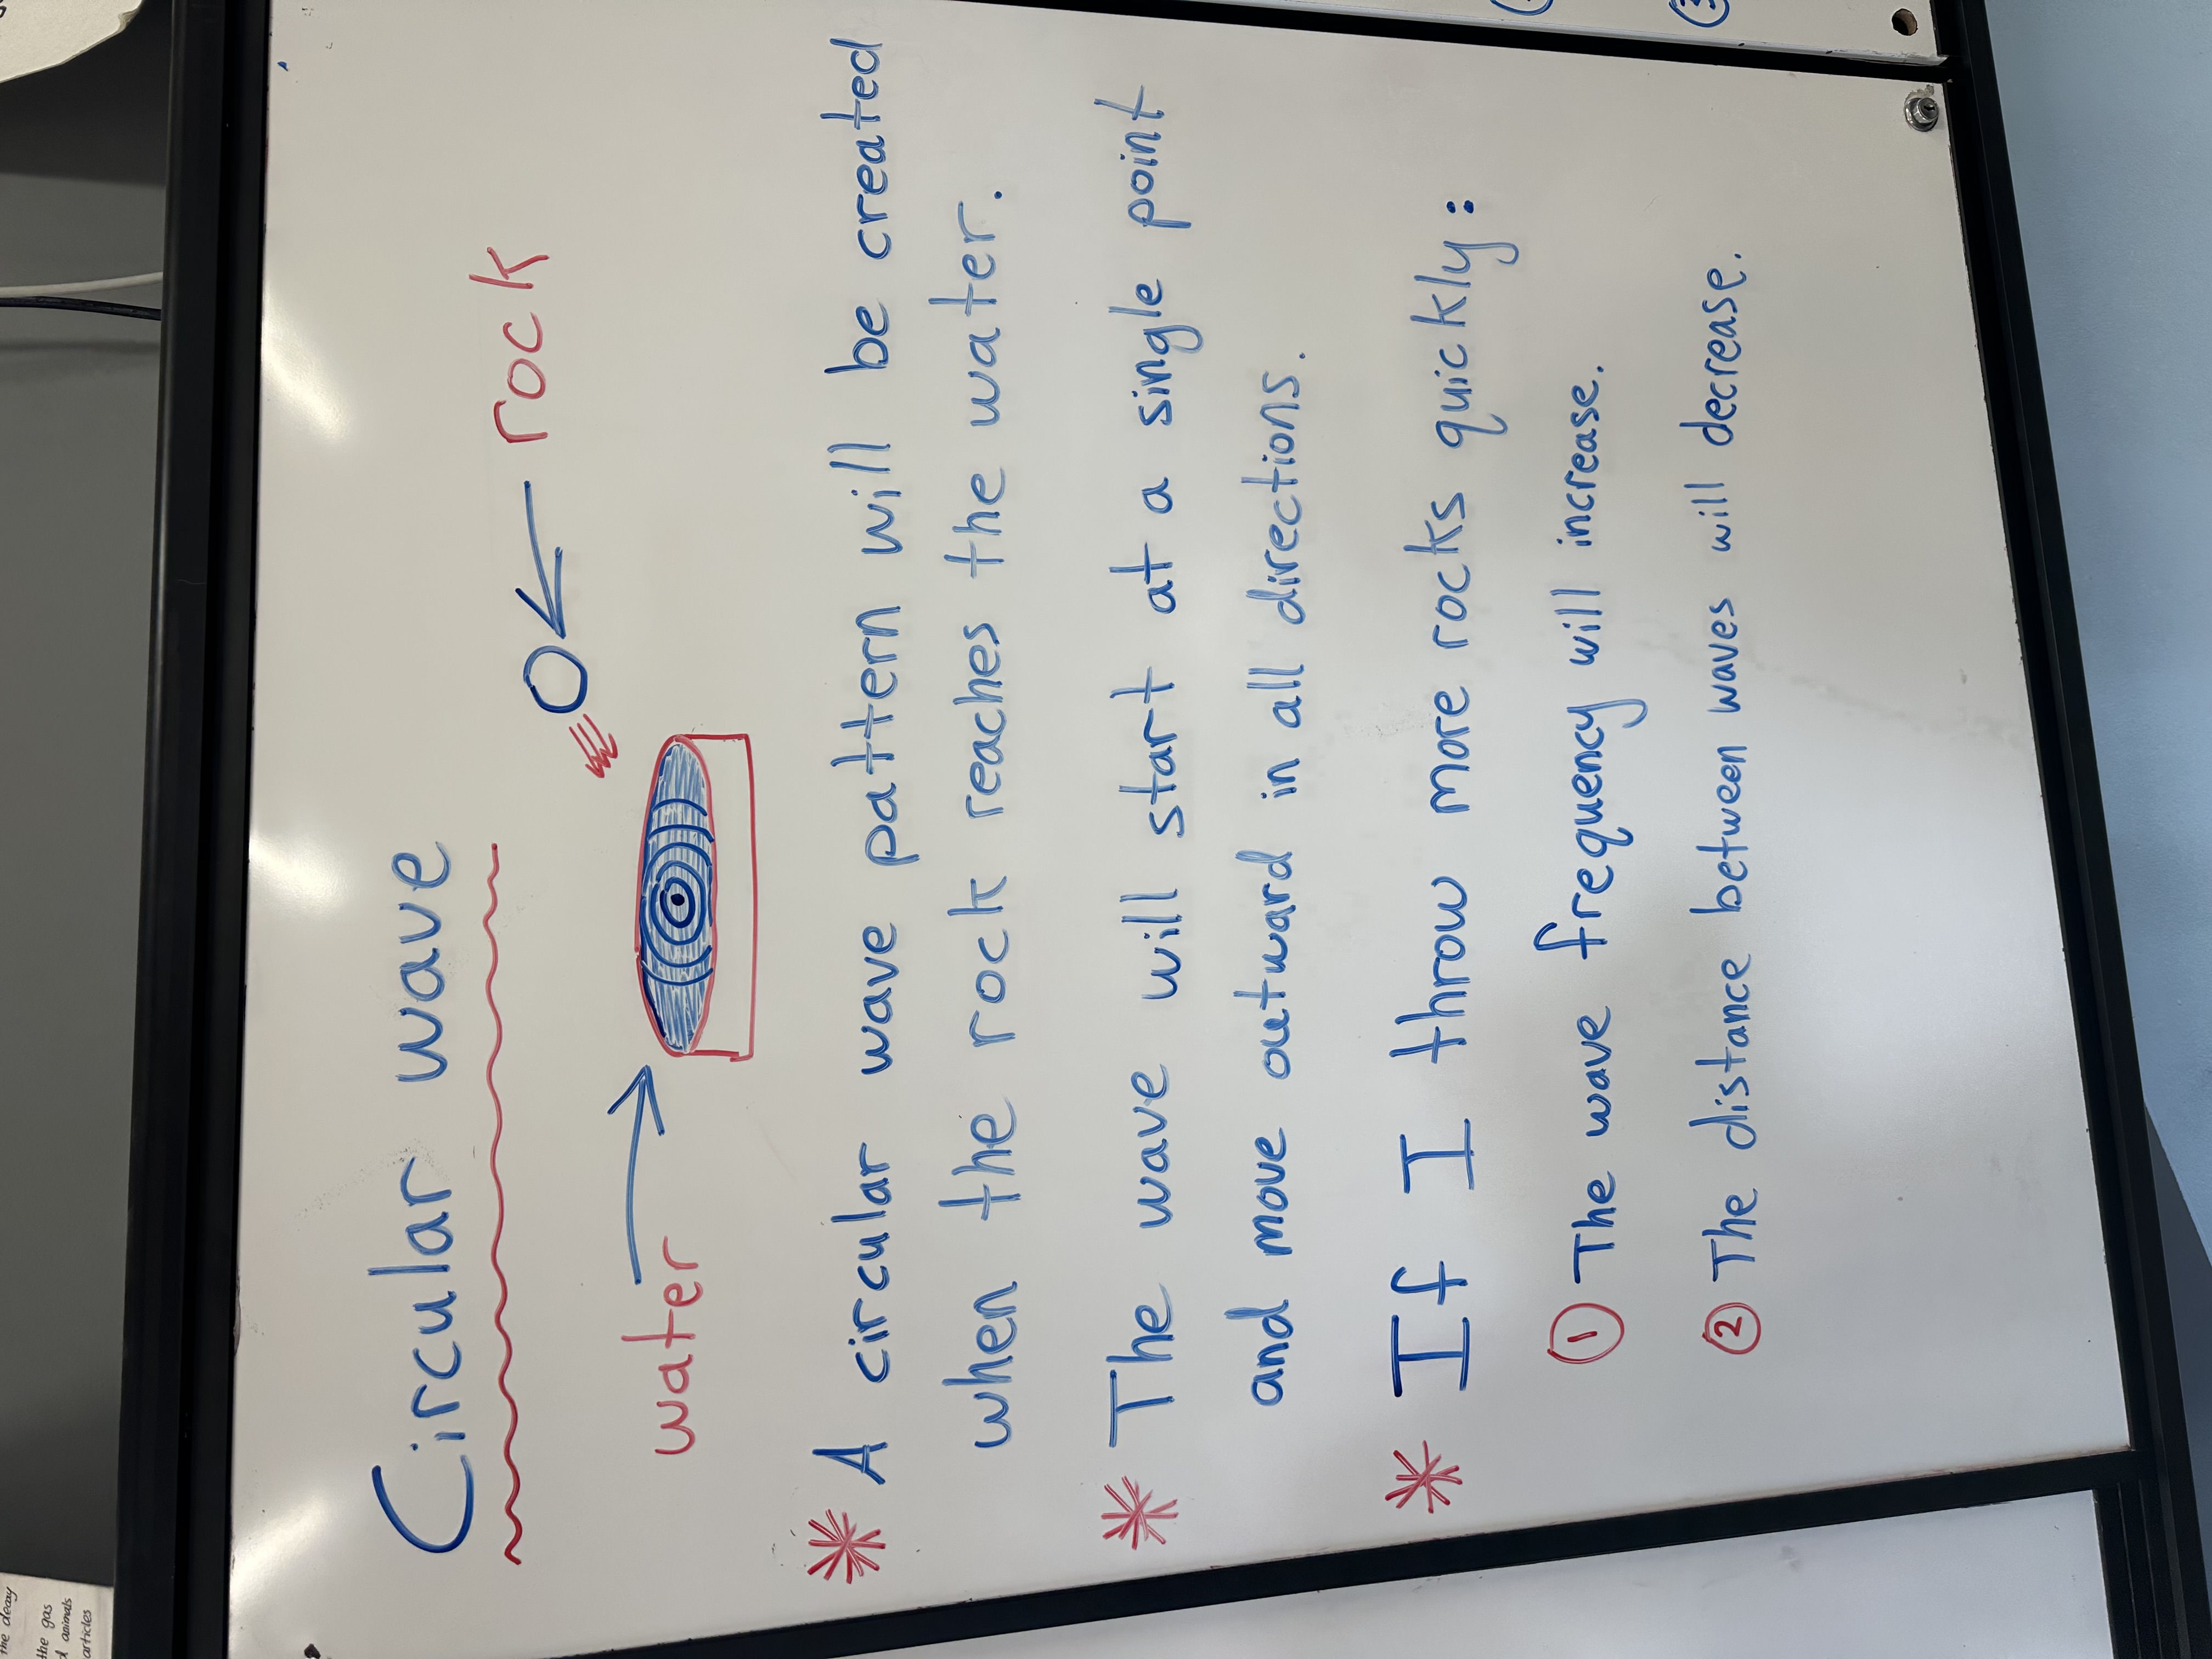 Circular wave
rock
water
* A circular wave pattern will be created
when the rock reaches the water.
* The wave will start at a single point
and move outward in all directions.
* If I throw more rocks quickly:
① The wave frequency will increase.
② The distance between waves will decrease.
the decay
the gas
animals
articles